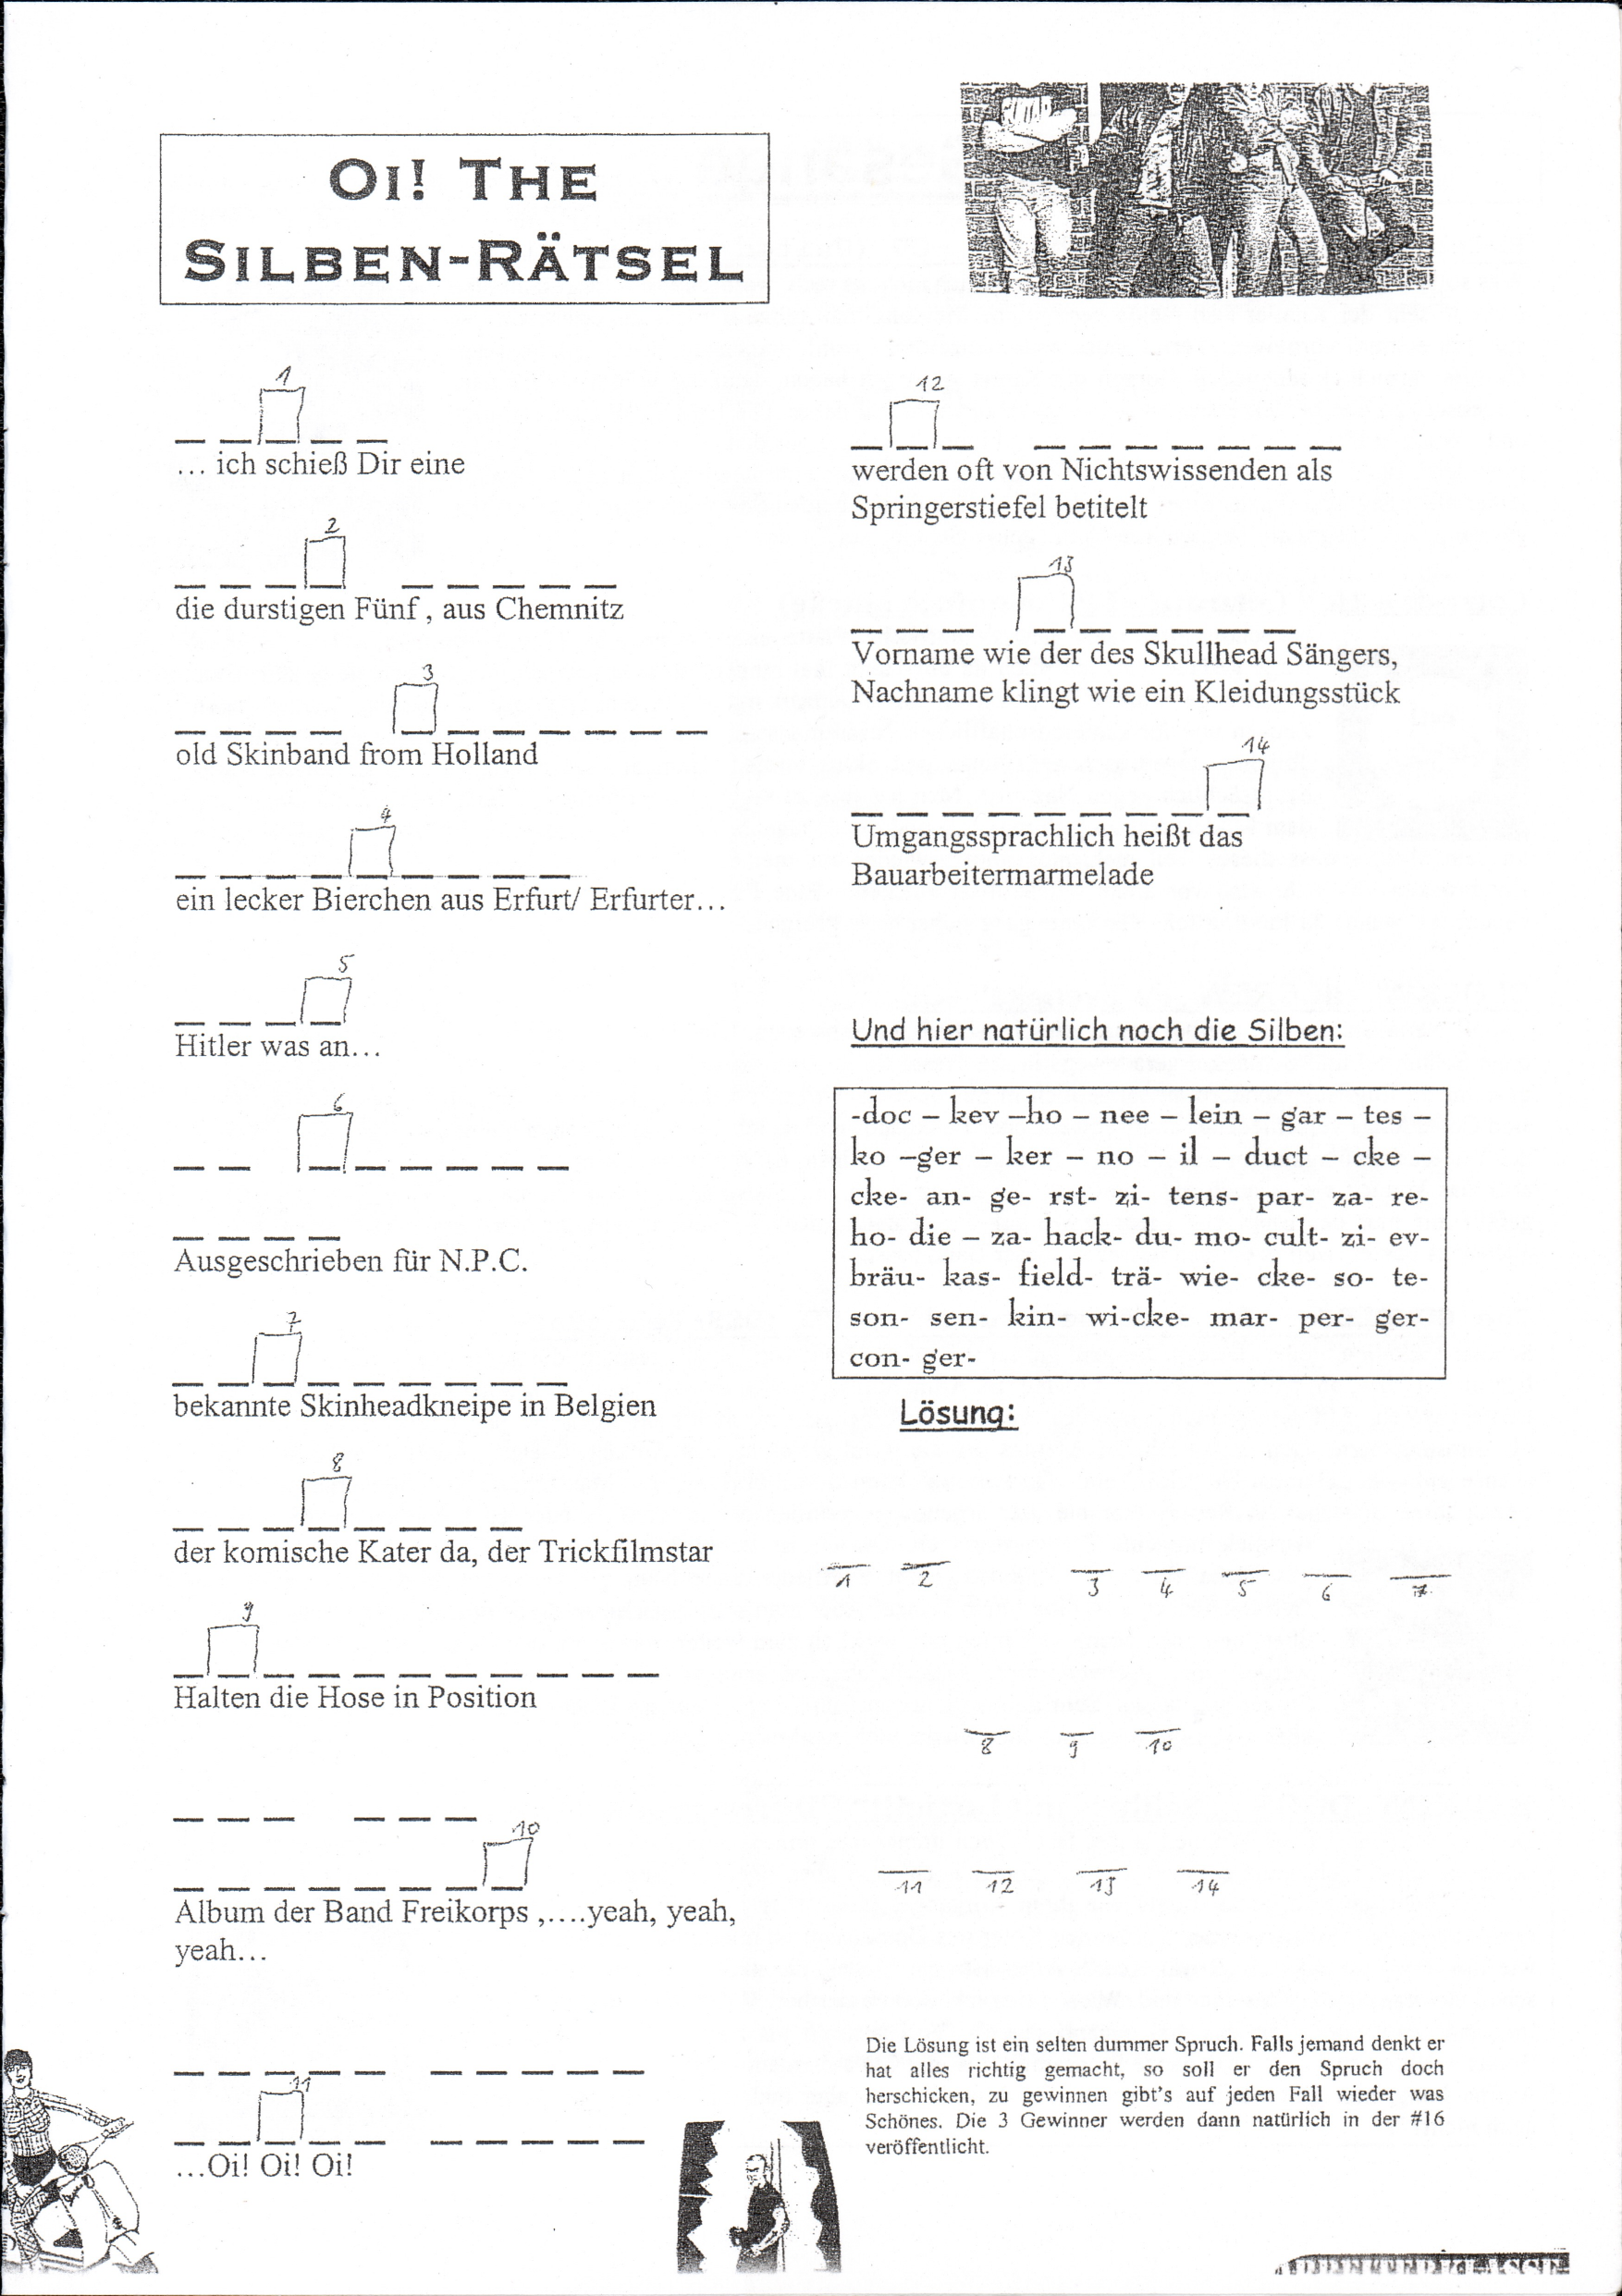 OI! THE
SILBEN-RÄTSEL
1
_ _ _ _ _
... ich schieß Dir eine
2
_ _ _ _ _ _ _ _ _
die durstigen Fünf , aus Chemnitz
3
_ _ _ _ _ _ _ _ _ _ _ _
old Skinband from Holland
4
_ _ _ _ _ _ _ _ _
ein lecker Bierchen aus Erfurt/ Erfurter...
5
_ _ _ _
Hitler was an...
6
_ _ _ _ _ _ _ _
_ _ _ _
Ausgeschrieben für N.P.C.
7
_ _ _ _ _ _ _ _ _
bekannte Skinheadkneipe in Belgien
8
_ _ _ _ _ _ _ _
der komische Kater da, der Trickfilmstar
9
_ _ _ _ _ _ _ _ _ _ _
Halten die Hose in Position
_ _ _ _ _ _
10
_ _ _ _ _ _ _ _
Album der Band Freikorps ,....yeah, yeah,
yeah...
_ _ _ _ _ _ _ _ _ _
11
_ _ _ _ _ _ _ _ _ _
...Oi! Oi! Oi!
12
_ _ _ _ _ _ _ _ _ _
werden oft von Nichtswissenden als
Springerstiefel betitelt
13
_ _ _ _ _ _ _ _ _
Vorname wie der des Skullhead Sängers,
Nachname klingt wie ein Kleidungsstück
14
_ _ _ _ _ _ _ _ _
Umgangssprachlich heißt das
Bauarbeitermarmelade
Und hier natürlich noch die Silben:
-doc – kev –ho – nee – lein – gar – tes –
ko –ger – ker – no – il – duct – cke –
cke- an- ge- rst- zi- tens- par- za- re-
ho- die – za- hack- du- mo- cult- zi- ev-
bräu- kas- field- trä- wie- cke- so- te-
son- sen- kin- wi-cke- mar- per- ger-
con- ger-
Lösung:
1 2 3 4 5 6 7
8 9 10
11 12 13 14
Die Lösung ist ein selten dummer Spruch. Falls jemand denkt er
hat alles richtig gemacht, so soll er den Spruch doch
herschicken, zu gewinnen gibt's auf jeden Fall wieder was
Schönes. Die 3 Gewinner werden dann natürlich in der #16
veröffentlicht.
ARBEITERKLASSE